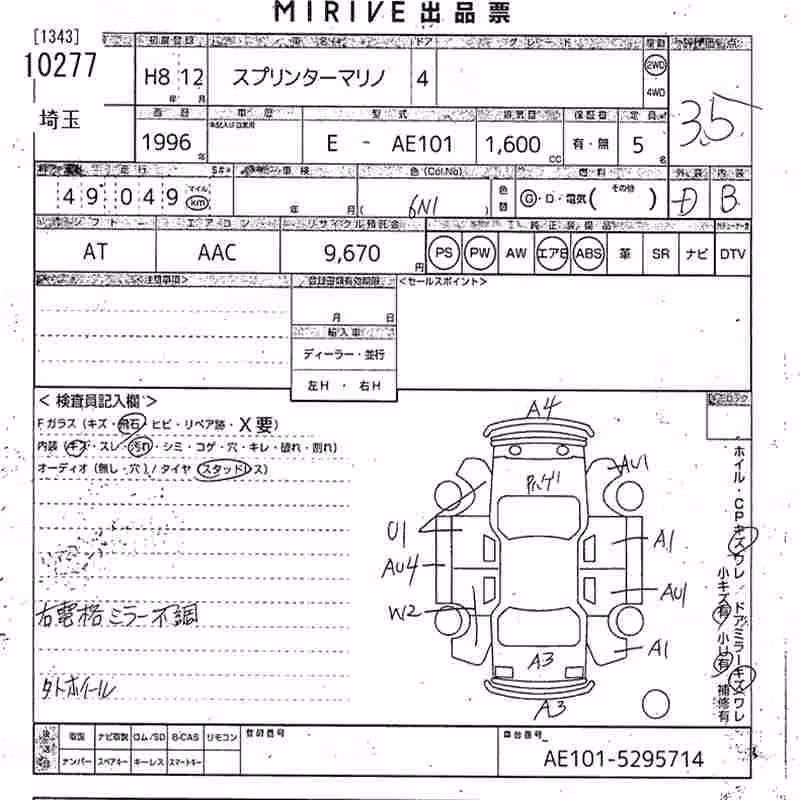 MIRIVE出品票
[1343]
10277
埼玉
初度登録
車名
ドア
グレード
駆動
評価点
H8 12
年 月
スプリンターマリノ
4
2WD
4WD
3.5
西暦
車歴
型式
排気量
保証書
定員
1996 年
E - AE101
1,600 cc
有・無
5 名
走行
車検
色(Col.No)
燃料
外装
内装
49,049
マイル
km
年 月
( 6N1
色替
G・D・電気( その他 )
D
B
シフト
エアコン
リサイクル預託金
純正装備品
AT
AAC
9,670 円
PS
PW
AW
エアB
ABS
革
SR
ナビ
DTV
<注意事項>
登録書類有効期限
<セールスポイント>
月 日
輸入車
ディーラー・並行
左H ・ 右H
<検査員記入欄>
Fガラス(キズ・飛石・ヒビ・リペア跡・X要)
内装(キズ・スレ・汚れ・シミ・コゲ・穴・キレ・破れ・割れ)
オーディオ(無し・穴)/タイヤ(スタッドレス)
右電格ミラー不調
タトホイール
A4
AU1
U1
A1
AU4
AU1
W2
A1
A3
A3
ホイル・CPキズワレ ドアミラーキズワレ
小キズ有 小U有 補修有
後送品
取説
ナビ取説
ロム/SD
B-CAS
リモコン
ナンバー
スペアキー
キーレス
スマートキー
登録番号
車台番号
AE101-5295714